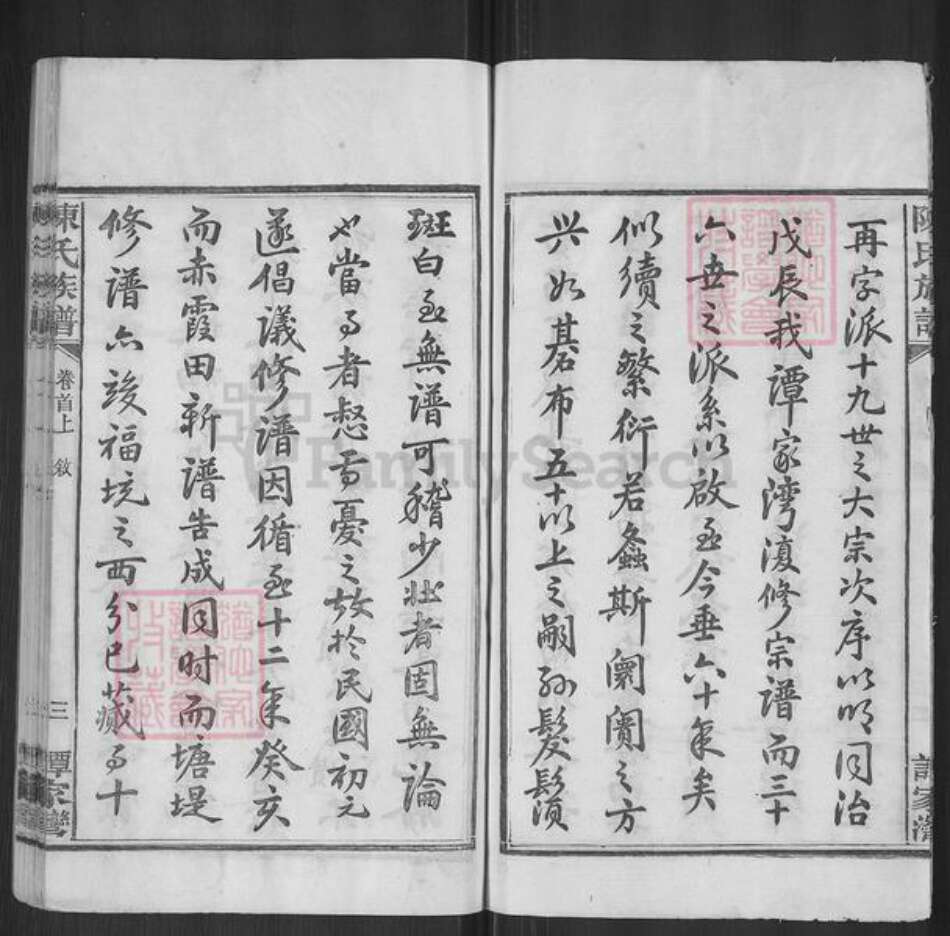 再字派十九世之大宗次序以明同治
戊辰我譚家湾復修宗譜而三十
六世之派系以啟至今垂六十年矣
似續之繁衍若螽斯闤闠之方
兴如碁布五十以上之嗣孙髮鬚
斑白至無譜可稽少壯者固無論
也當事者惄焉憂之故於民國初元
遂倡議修譜因循至十二年癸亥
而赤霞田新譜告成同时而塘堤
修譜亦竣福坑之西分已蕆事十
陳氏族譜
卷首上
敘
三
譚家灣
FamilySearch